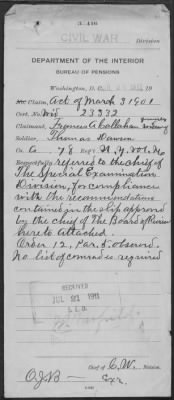 3-446
CIVIL WAR
Division
DEPARTMENT OF THE INTERIOR
BUREAU OF PENSIONS
Washington, D. C.,
Claim, Act of March 3 1901
Cert. No. 23332
Claimant, Frances A Callahan
Soldier, Thomas Dawson
Co. G 78 Reg't N.Y. Vol.
Respectfully referred to the Chief of
The Special Examination
Division, for compliance
with the recommendations
contained in the slip approved
by the chief of the Board of Review
hereto attached.
Order 12, Par. 5. observed.
No list of comrades is required
RECEIVED
JUL 21 1911
Chief of C.W. Division.
O.J.B— Exr.